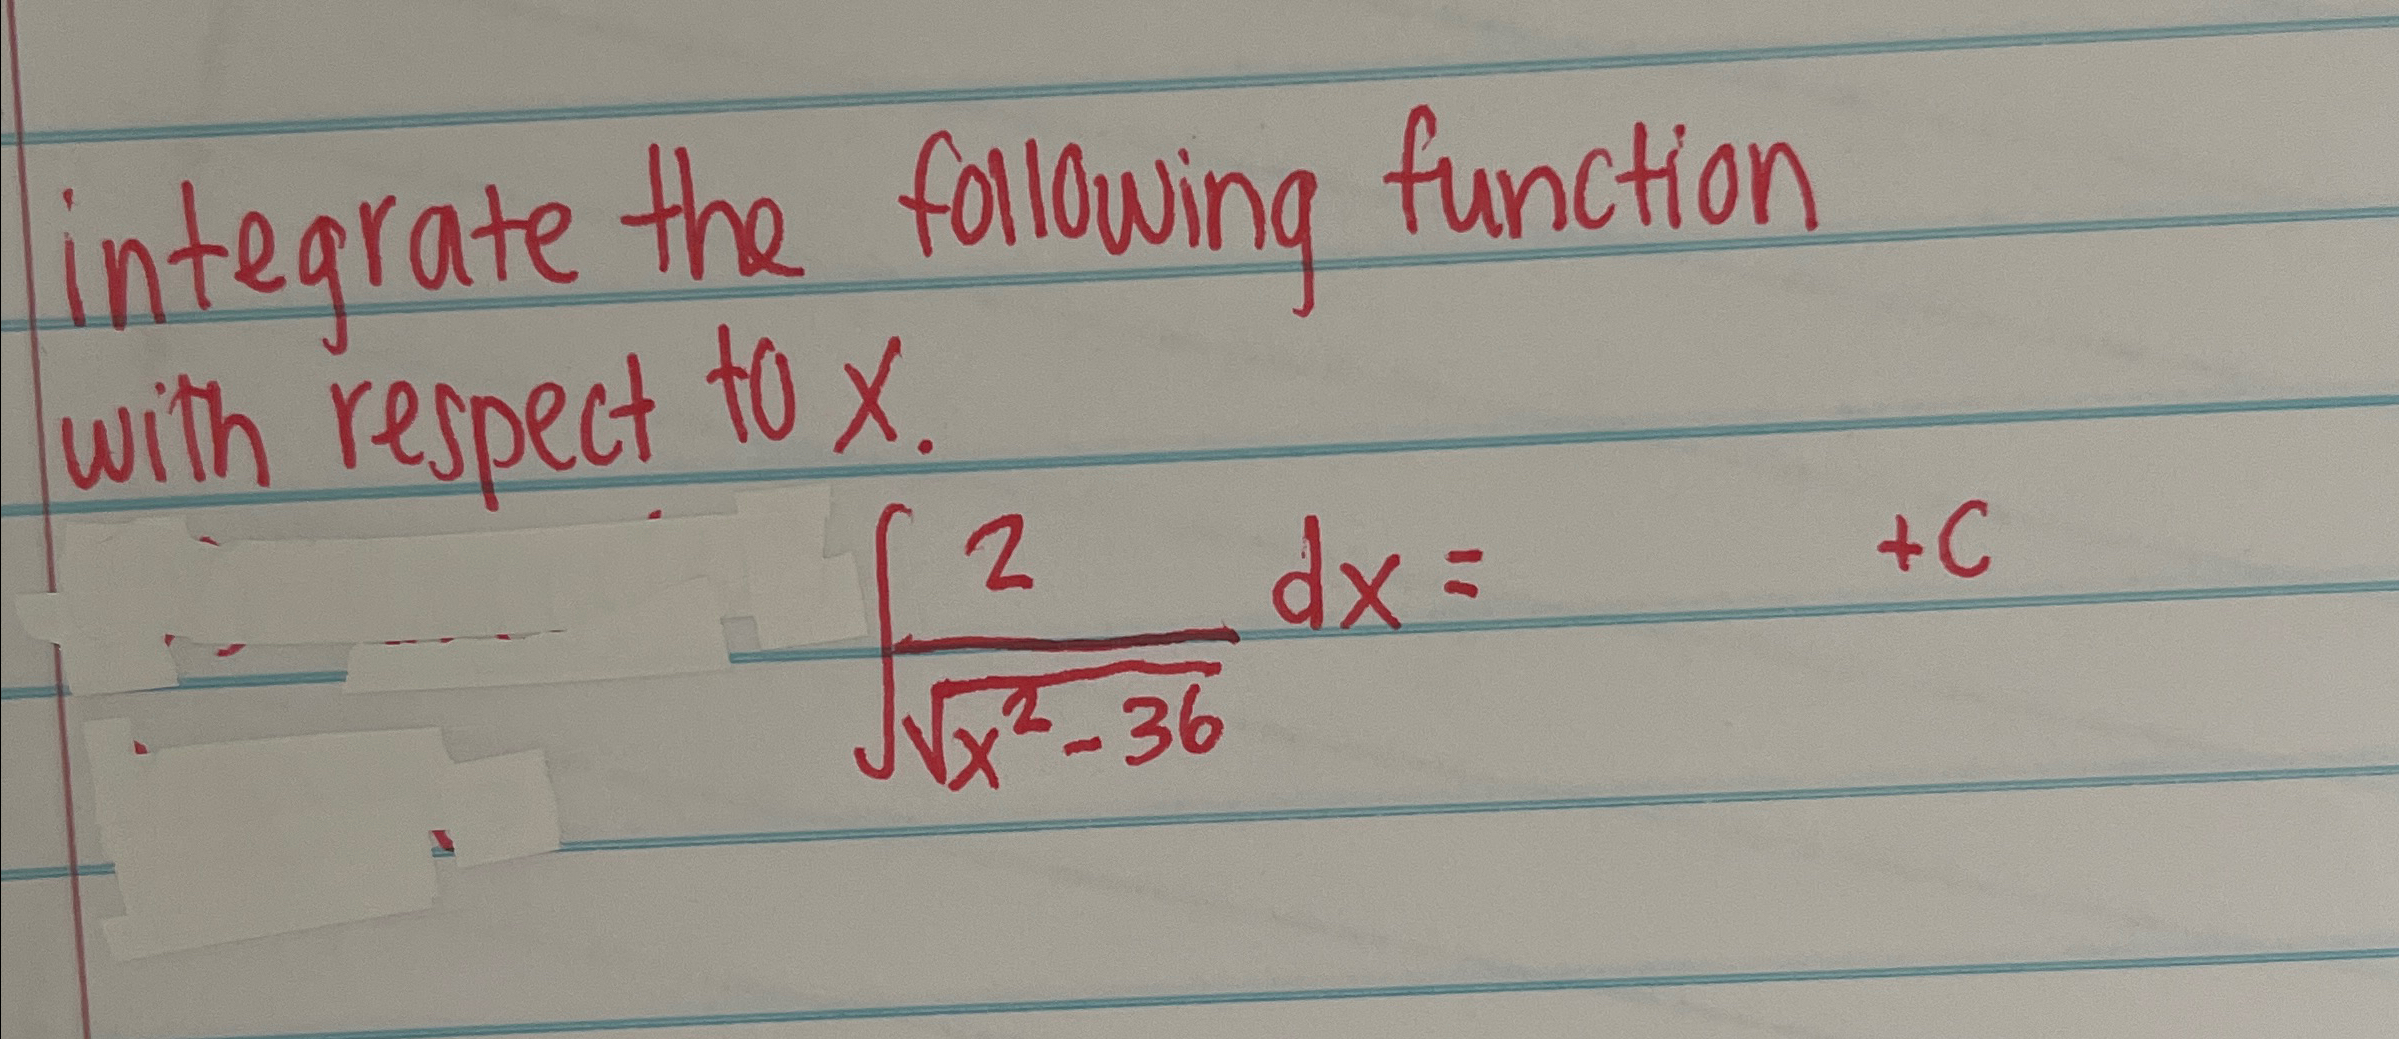 integrate the following function
with respect to x.
∫ 2/√(x² - 36) dx = +C